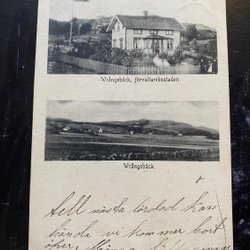 Wrångebäck, förvaltarebostaden
Wrångebäck.
Till nästa lördag kan
hända vi kommer bort